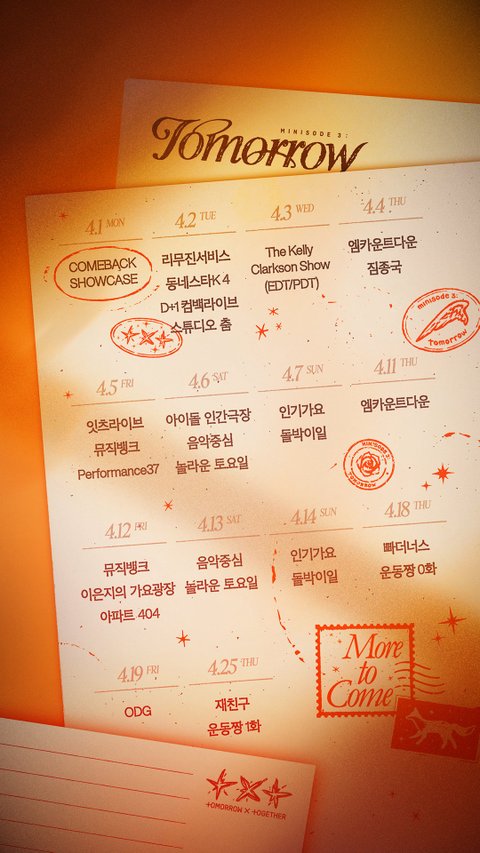 MINISODE 3:
Tomorrow
4.1 MON
COMEBACK
SHOWCASE
4.2 TUE
리무진서비스
동네스타K 4
D+1 컴백라이브
스튜디오 춤
4.3 WED
The Kelly
Clarkson Show
(EDT/PDT)
4.4 THU
엠카운트다운
짐종국
minisode 3:
Tomorrow
4.5 FRI
잇츠라이브
뮤직뱅크
Performance37
4.6 SAT
아이돌 인간극장
음악중심
놀라운 토요일
4.7 SUN
인기가요
돌박이일
4.11 THU
엠카운트다운
MINISODE 3:
TOMORROW
4.12 FRI
뮤직뱅크
이은지의 가요광장
아파트 404
4.13 SAT
음악중심
놀라운 토요일
4.14 SUN
인기가요
돌박이일
4.18 THU
빠더너스
운동짱 0화
4.19 FRI
ODG
4.25 THU
재친구
운동짱 1화
More
to
Come
TOMORROW X TOGETHER